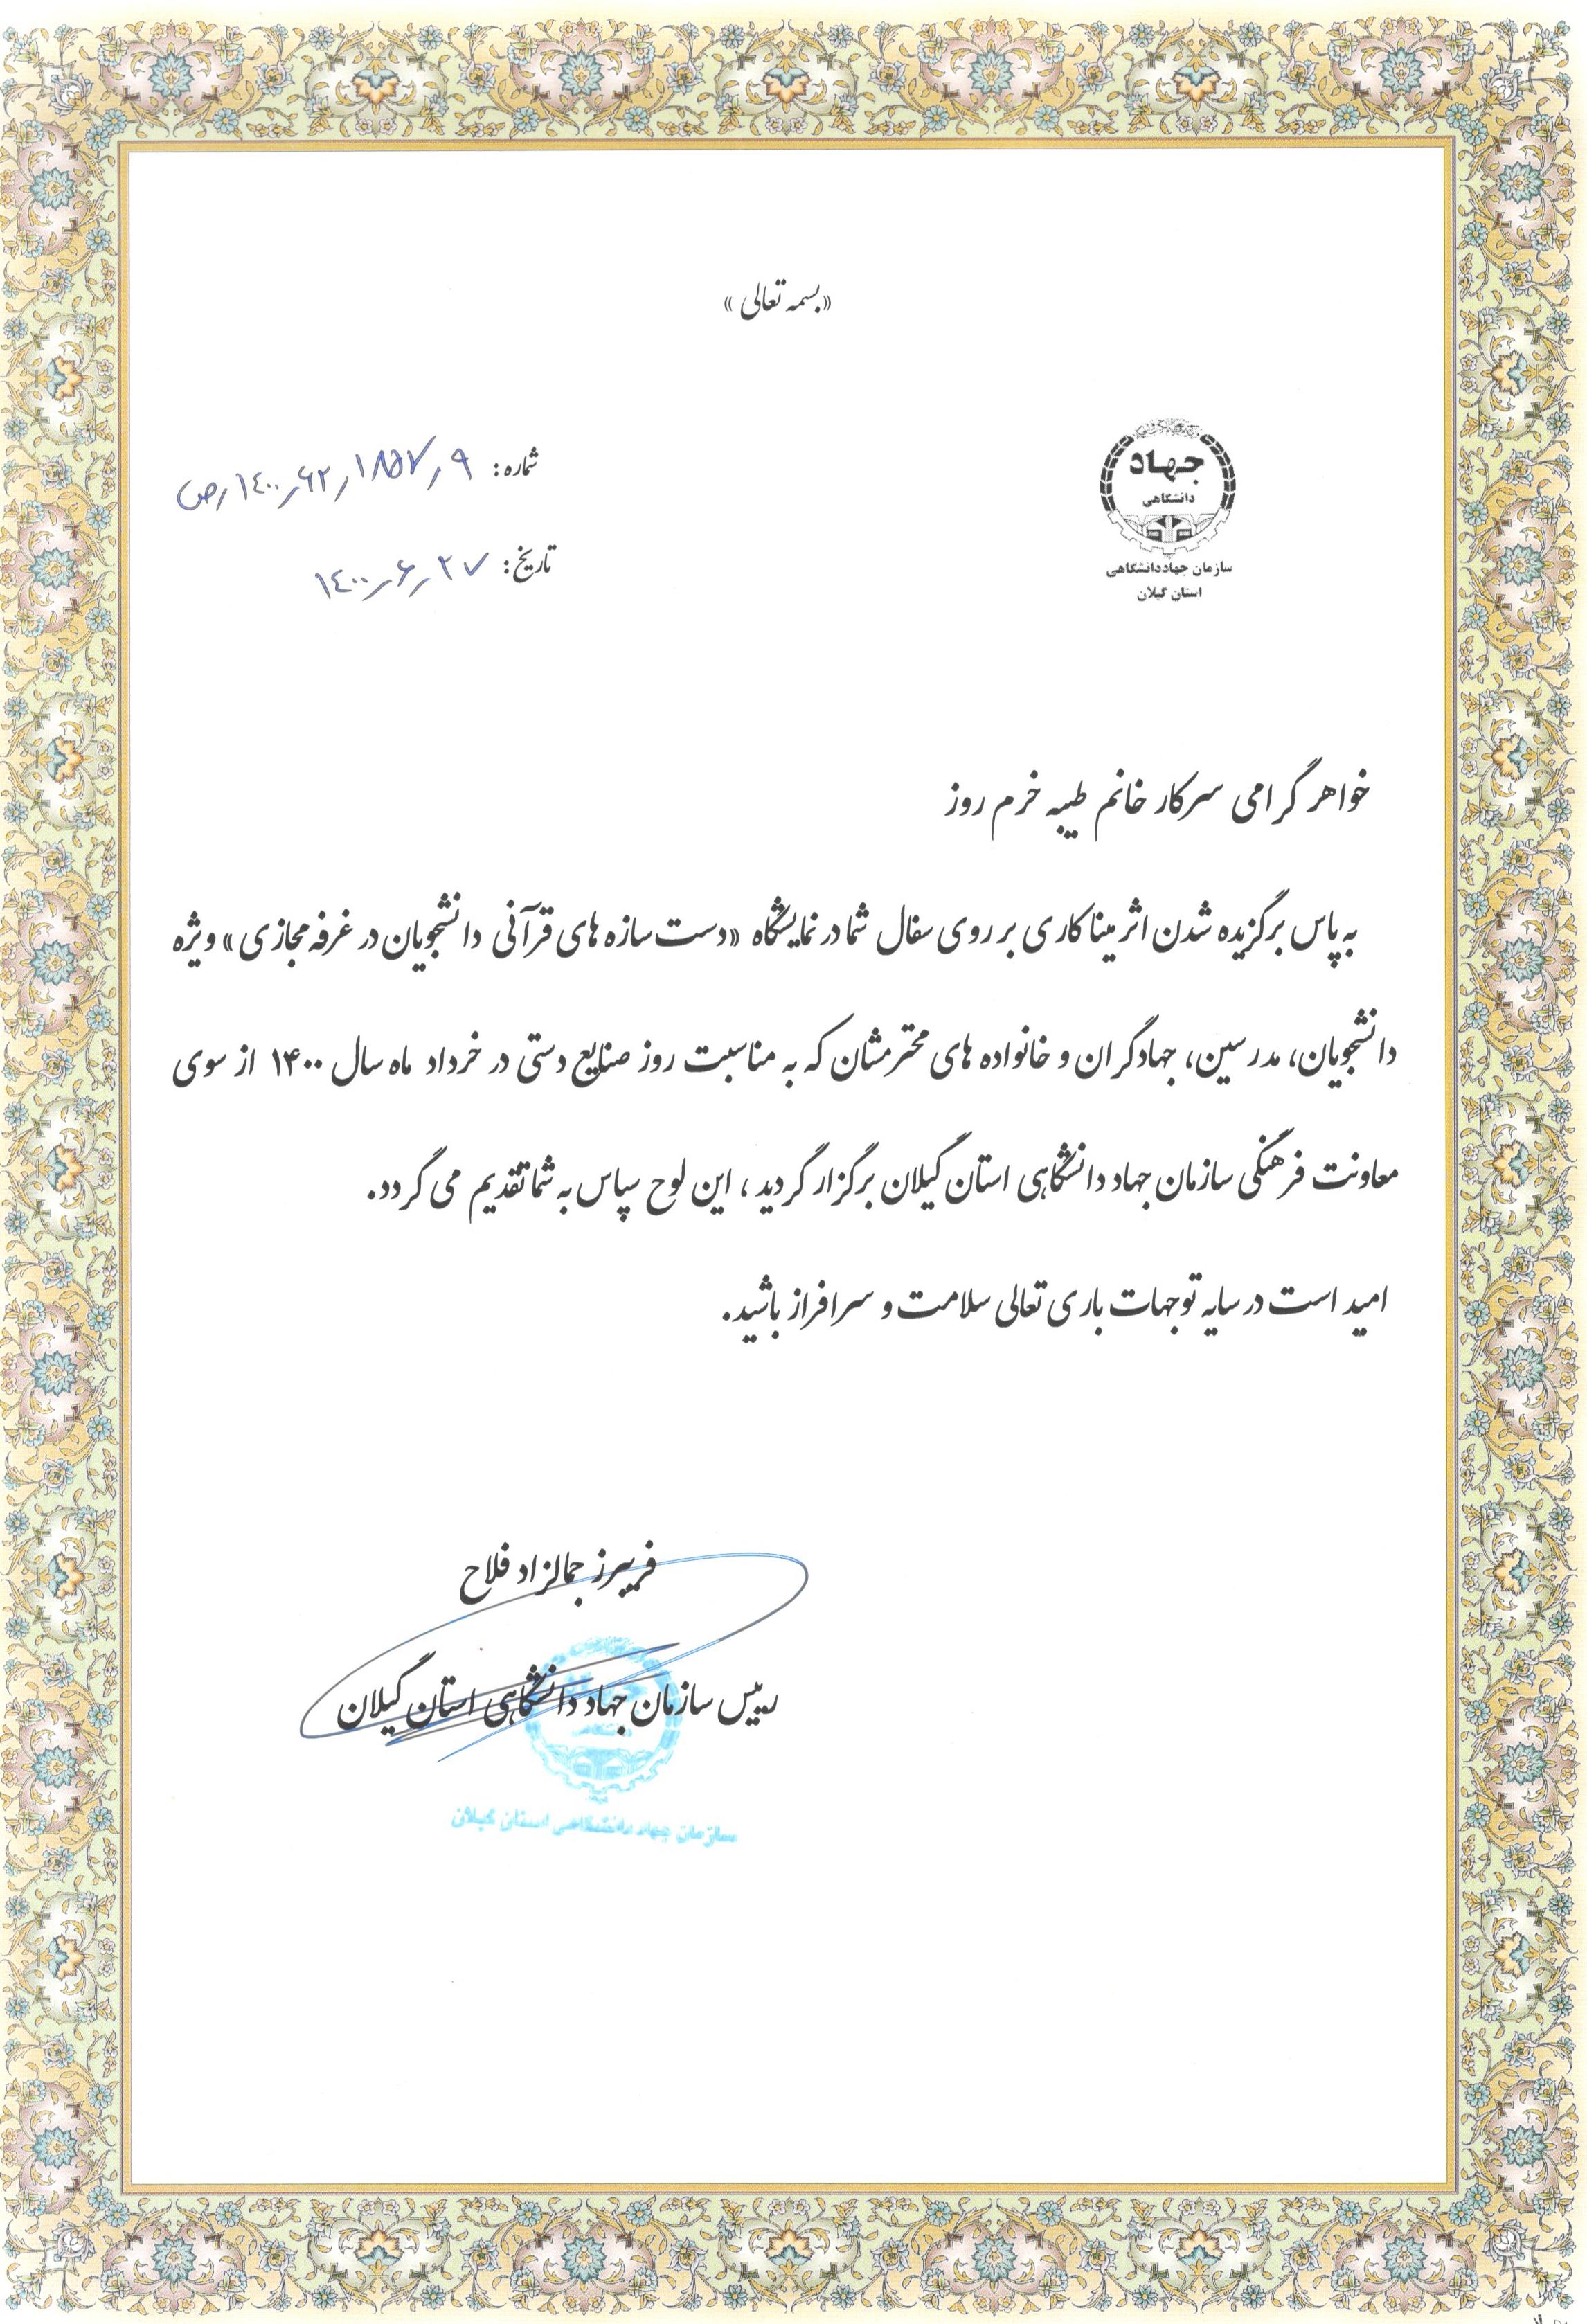 «بسمه تعالی»
جهاد
دانشگاهی
سازمان جهاددانشگاهی
استان گیلان
شماره: ۹ر۱۸۵۷ر۶۲ر۱۴۰۰رص
تاریخ: ۲۷ر۶ر۱۴۰۰
خواهر گرامی سرکار خانم طیبه خرم روز
به پاس برگزیده شدن اثر میناکاری بر روی سفال شما در نمایشگاه «دست سازه های قرآنی دانشجویان در غرفه مجازی» ویژه
دانشجویان، مدرسین، جهادگران و خانواده های محترمشان که به مناسبت روز صنایع دستی در خرداد ماه سال ۱۴۰۰ از سوی
معاونت فرهنگی سازمان جهاد دانشگاهی استان گیلان برگزار گردید، این لوح سپاس به شما تقدیم می گردد.
امید است در سایه توجهات باری تعالی سلامت و سرافراز باشید.
فریبرز جمالزاد فلاح
رییس سازمان جهاد دانشگاهی استان گیلان
سازمان جهاد دانشگاهی استان گیلان